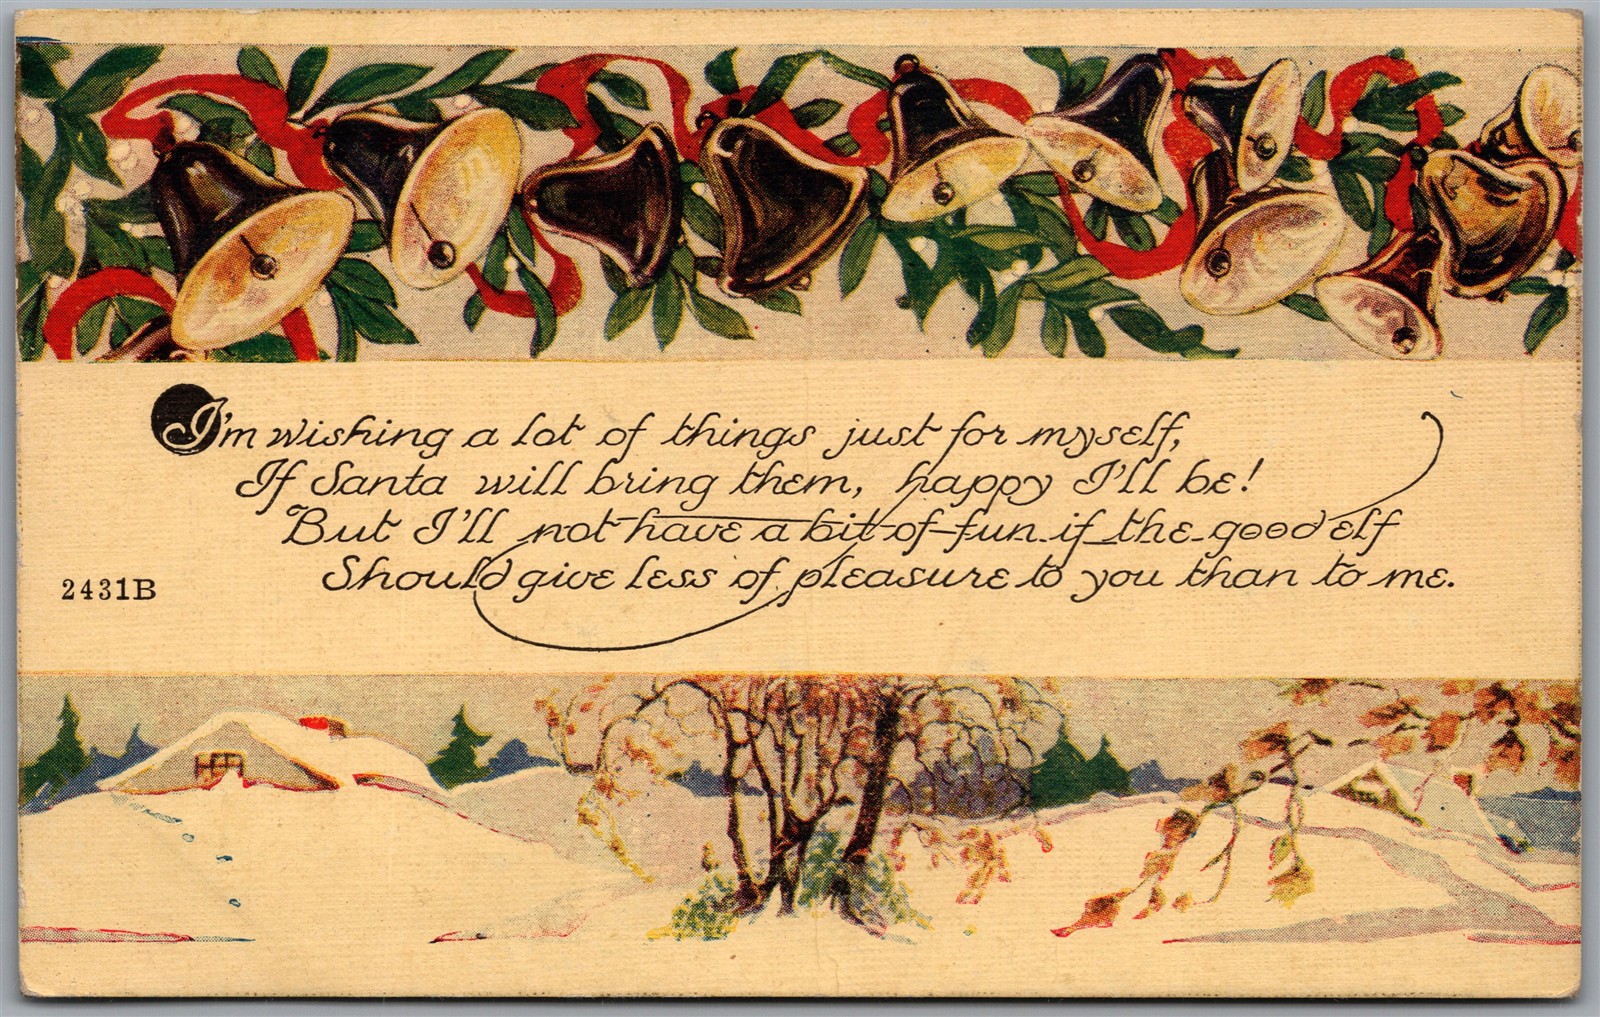 I'm wishing a lot of things just for myself,
If Santa will bring them, happy I'll be!
But I'll not have a bit of fun if the good elf
Should give less of pleasure to you than to me.
2431B